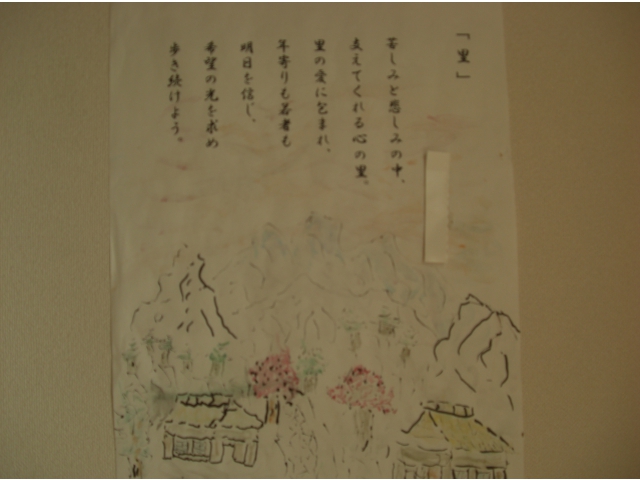 「里」
苦しみと悲しみの中、
支えてくれる心の里。
里の愛に包まれ、
年寄りも若者も
明日を信じ、
希望の光を求め
歩き続けよう。